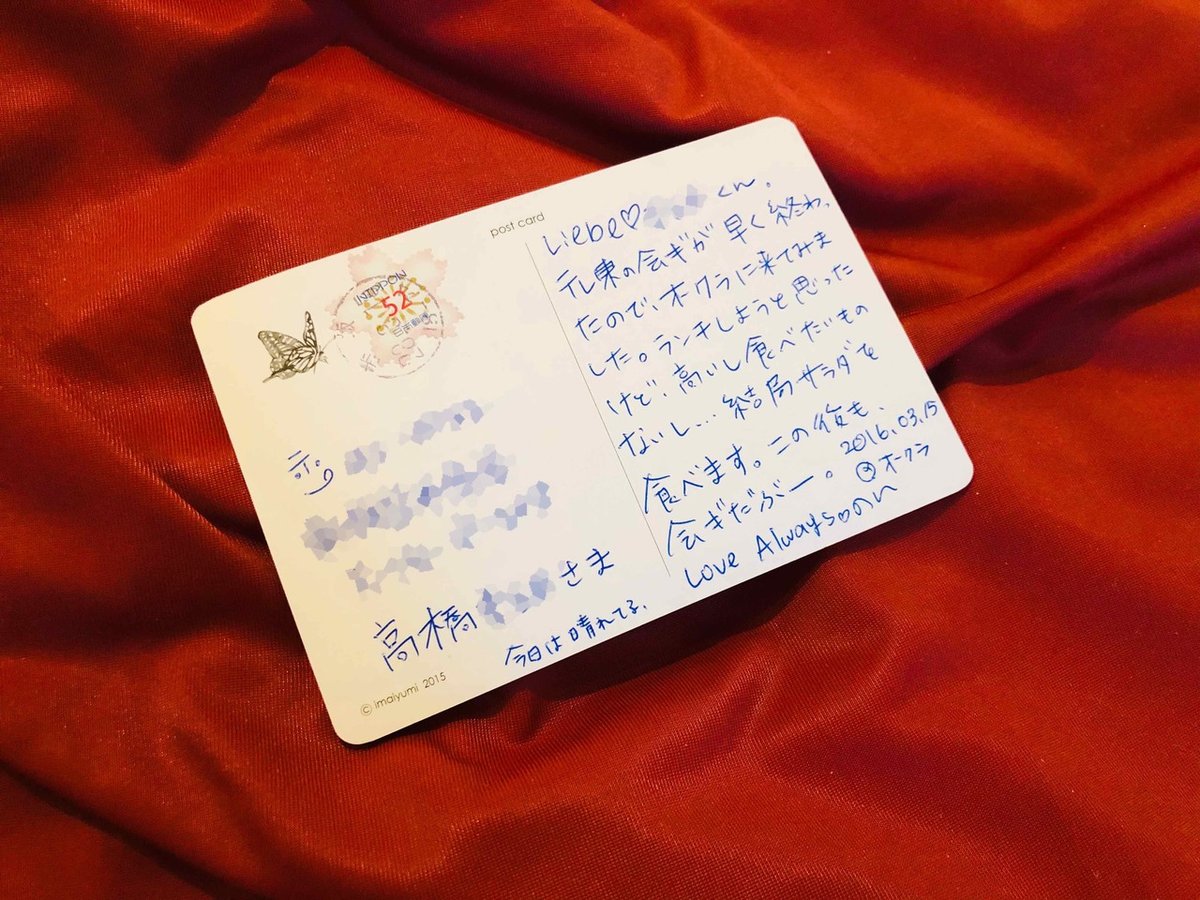 post card
NIPPON
52
日本郵便
高橋 さま
今日は晴れてる、
© imaiyumi 2015
Liebe♡ くん。
テレ東の会ぎが早く終わっ
たので、オークラに来てみま
した。ランチしようと思った
けど、高いし食べたいもの
ないし…結局サラダを
食べます。この後も、
会ぎだぶー。
2016.03.15
@オークラ
Love Always♡のん